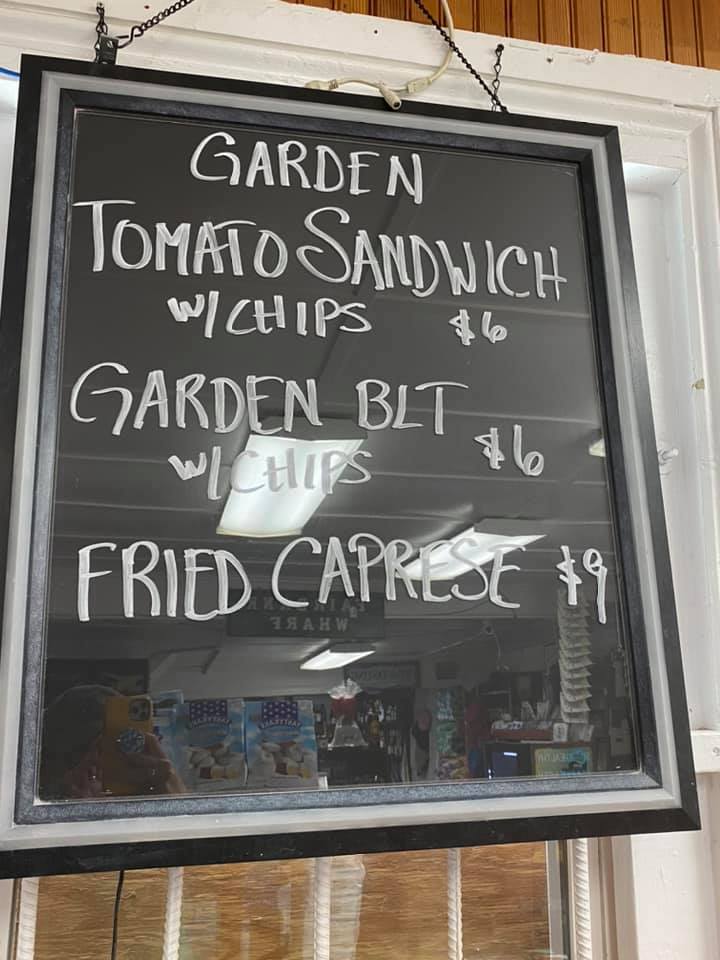 GARDEN
TOMATO SANDWICH
W/ CHIPS $6
GARDEN BLT
W/ CHIPS $6
FRIED CAPRESE $9
WHARF